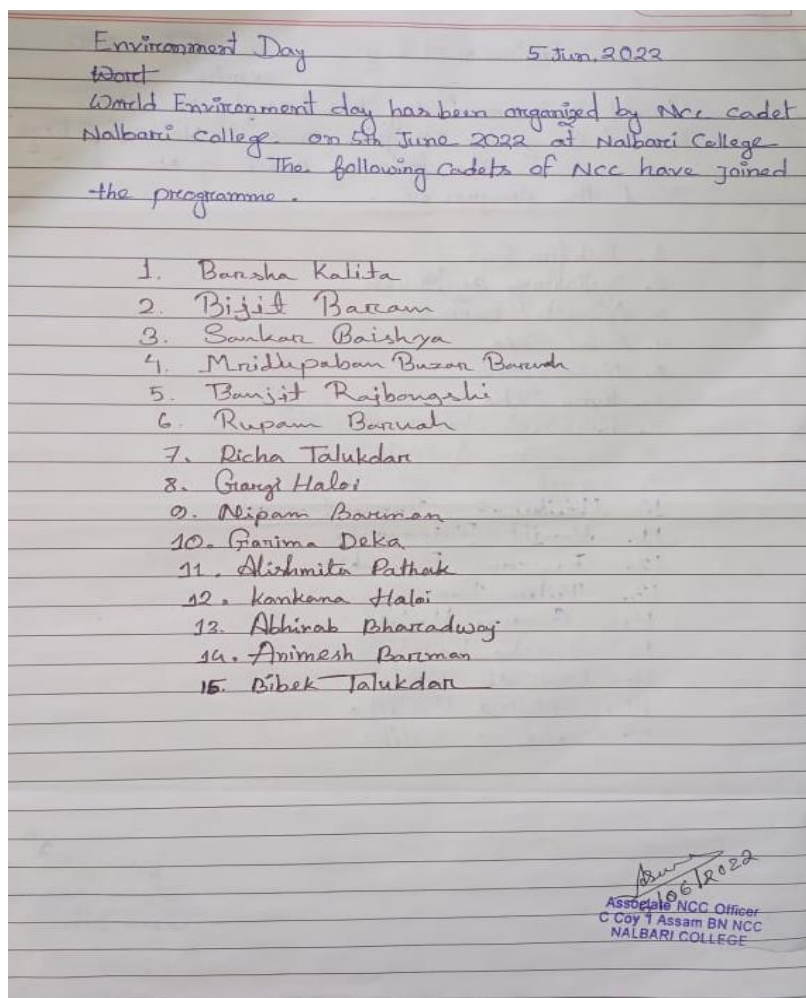 Environment Day 5 Jun, 2022
World Environment day has been organized by Ncc cadet
Nalbari College on 5th June 2022 at Nalbari College
The following Cadets of Ncc have joined
the programme.
1. Barsha Kalita
2. Bijit Baram
3. Sankar Baishya
4. Mridupaban Buzar Baruah
5. Banjit Rajbongshi
6. Rupam Baruah
7. Richa Talukdar
8. Gargi Haloi
9. Nipam Barman
10. Garima Deka
11. Alishmita Pathak
12. Kankana Haloi
13. Abhinab Bharadwaj
14. Animesh Barman
15. Bibek Talukdar
/06/2022
Associate NCC Officer
C Coy 1 Assam BN NCC
NALBARI COLLEGE